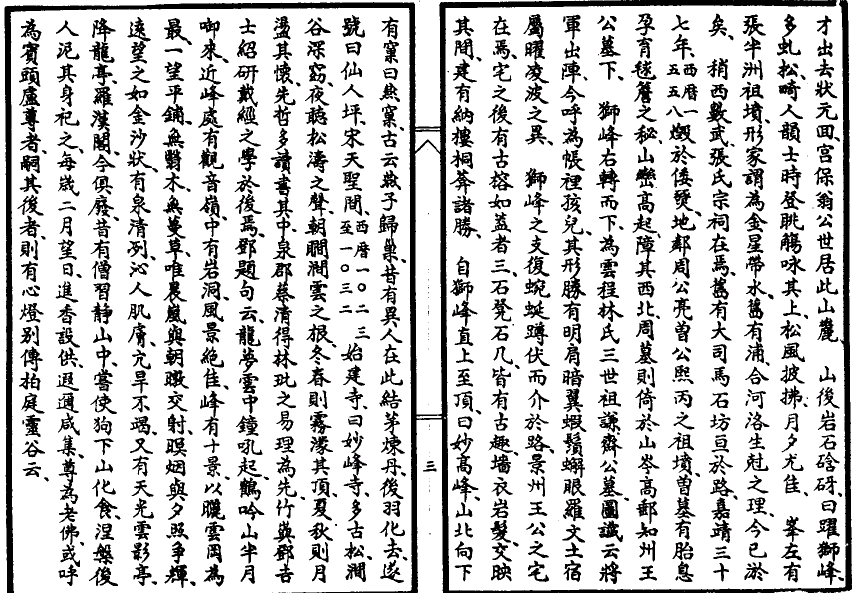 才出去狀元回宮保翁公世居此山麓　山後岩石硆砑、曰躍獅峰
多虬松畸人韻士時登眺觴咏其上、松風披拂、月夕尤佳　峯左有
張半洲祖墳、形家謂為金星帶水、舊有浦合河洛生尅之理、今已淤
矣、稍西數武、張氏宗祠在焉、舊有大司馬石坊亘於路、嘉靖三十
七年、西曆一五五八燬於倭燹、地鄰周公亮、曾公熙丙之祖墳、曾墓有胎息
孕育毬簷之秘、山巒高起、障其西北、周墓則倚於山岑、高郵知州王
公墓下　獅峰右轉而下、為雲程林氏三世祖謙齋公墓、圖讖云、將
軍出陣、今呼為帳裡孩兒、其形勝有明肩暗翼、蝦鬚蠏眼、羅文土宿
屬曜凌波之異　獅峰之支、復蜿蜒蹲伏而介於路、景州王公之宅
在焉、宅之後有古榕如蓋者三、石凳石几、皆有古趣、墻衣岩髮交映
其間、建有納樓桐莾諸勝　自獅峰直上至頂、曰妙高峰、山北向下
有窠曰燕窠、古云燕子歸巢、昔有異人在此結茅煉丹、後羽化去、遂
號曰仙人坪、宋天聖間、西曆一〇二三至一〇三二始建寺、曰妙峰寺、多古松澗
谷深窈、夜聽松濤之聲、朝瞯澗雲之根、冬春則霧濛其頂、夏秋則月
盪其懷、先哲多讀書其中、泉郡蔡清得林玭之易理為先、竹與鄧吉
士紹研戴經之學於後焉、鄧題句云、龍夢雲中鐘吼起、鶴吟山半月
啣來、近峰處有觀音嶺、中有岩洞、風景絕佳、峰有十景、以曬雲岡為
最一望平鋪、無翳木、無蔓草、唯晨嵐與朝暾交射、暝烟與夕照爭輝
遠望之如金沙狀、有泉清冽、沁人肌膚、亢旱不竭、又有天光雲影亭
降龍亭、羅漢閣、今俱廢、昔有僧習靜山中、嘗使狗下山化食、涅槃後
人泥其身祀之、每歲二月望日、進香設供、遐邇咸集、尊為老佛或呼
為賓頭盧尊者、嗣其後者、則有心燈別傳柏庭靈谷云、
三